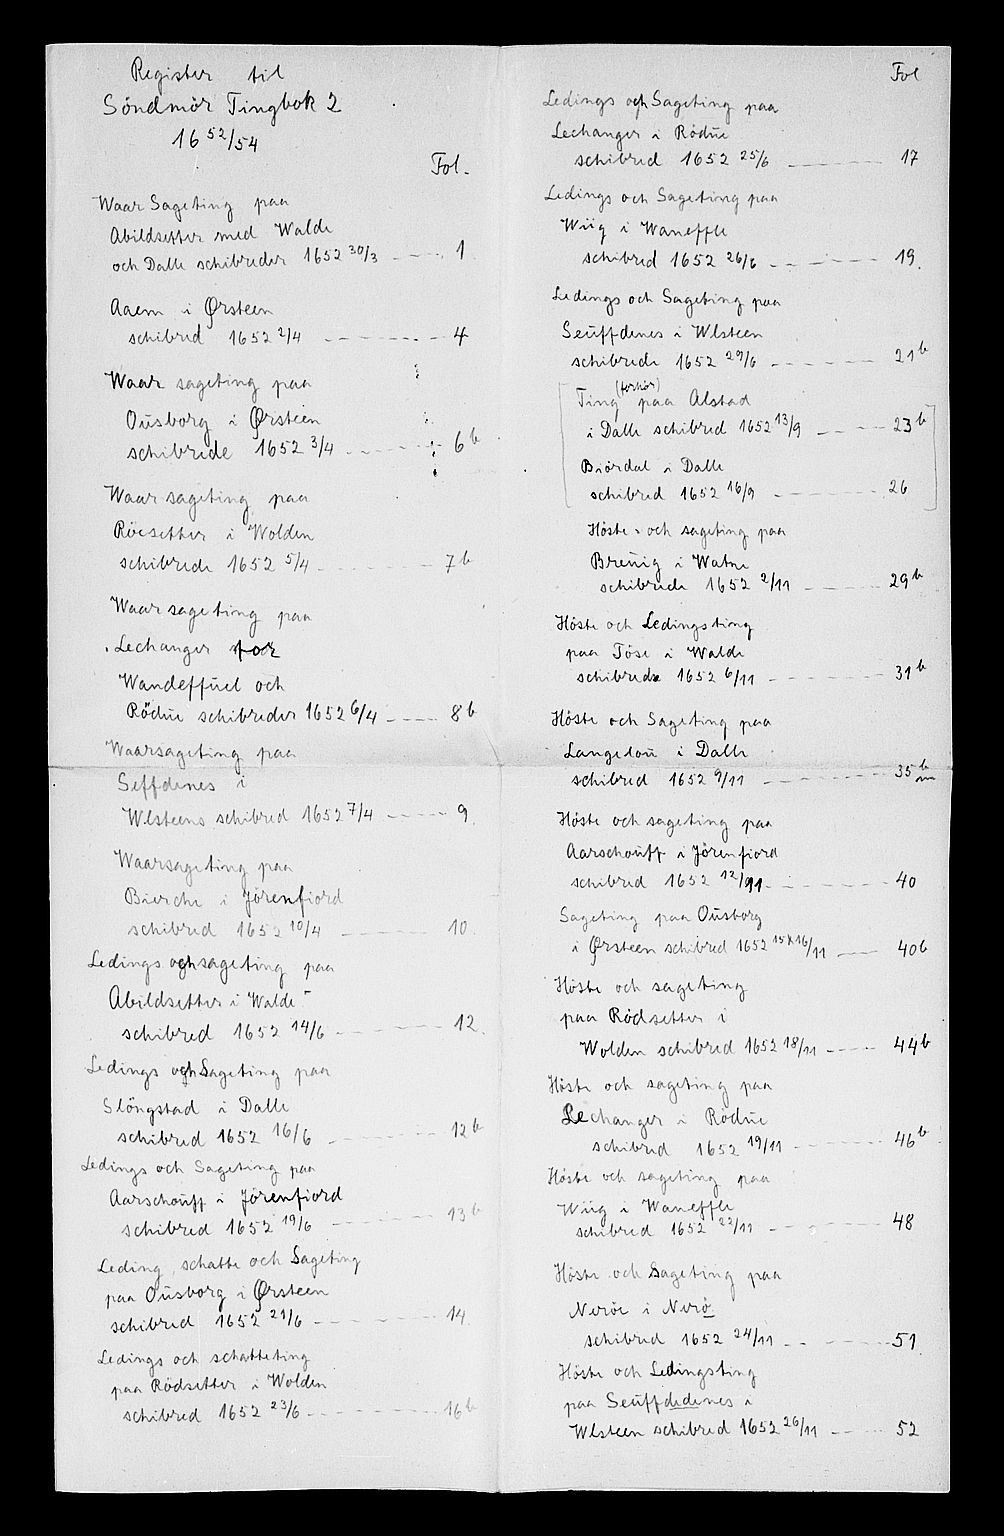 Register til
Söndmör Tingbok 2
1652/54
Fol.
Waar Sageting paa
Abildsetter med Walde
och Dalle schibreder 1652 30/3 - - - - 1
Aaem i Ørsteen
schibred 1652 2/4 - - - - - - 4
Waar sageting paa
Ousborg i Ørsteen
schibrede 1652 3/4 - - - - - 6b
Waar sageting paa
Röesetter i Wolden
schibrede 1652 5/4 - - - - - 7b
Waar sageting paa
Lechanger for
Wandeffuel och
Rödue schibreder 1652 6/4 - - - - 8b
Waarsageting paa
Seffdenes i
Wlsteens schibred 1652 7/4 - - - - 9.
Waarsageting paa
Bierche i Jörenfiord
schibred 1652 10/4 - - - - - 10.
Ledings och sageting paa
Abildsetter i Walde
schibred 1652 14/6 - - - - - 12.
Ledings och Sageting paa
Slöngstad i Dalle
schibred 1652 16/6 - - - - - 12b
Ledings och Sageting paa
Aarschouff i Jörenfiord
schibred 1652 19/6 - - - - - 13b
Leding, schatte och Sageting
paa Ousborg i Ørsteen
schibred 1652 21/6 - - - - - 14.
Ledings och schatteting
paa Rödsetter i Wolden
schibred 1652 23/6 - - - - - 16b
Fol
Ledings och Sageting paa
Lechanger i Rödue
schibred 1652 25/6 - - - - - 17
Ledings och Sageting paa
Wiig i Waneffle
schibred 1652 26/6 - - - - - 19.
Ledings och Sageting paa
Seuffdenes i Wlsteen
schibrede 1652 29/6 - - - - - 21b
Ting (forhör) paa Alstad
i Dalle schibred 1652 13/9 - - - - 23b
Biördal i Dalle
schibred 1652 16/9 - - - - - 26
Höste- och sageting paa
Breuig i Watne
schibrede 1652 2/11 - - - - 29b
Höste och Ledingsting
paa Töse i Walde
schibrede 1652 6/11 - - - - - 31b
Höste och Sageting paa
Langelou i Dalle
schibred 1652 9/11 - - - - - 35b
Höste och sageting paa
Aarschouff i Jörenfiord
schibred 1652 12/11 - - - - - 40
Sageting paa Ousborg
i Ørsteen schibred 1652 15 & 16/11 - - - 40b
Höste och sageting
paa Rödsetter i
Wolden schibred 1652 18/11 - - - - 44b
Höste och sageting paa
Lechanger i Rödue
schibred 1652 19/11 - - - - - 46b
Höste och sageting paa
Wiig i Waneffle
schibred 1652 22/11 - - - - - 48
Höste och Sageting paa
Neröe i Nerö
schibred 1652 24/11 - - - - - 51
Höste och Ledingsting
paa Seuffdedenes i
Wlsteen schibred 1652 26/11 - - - - 52